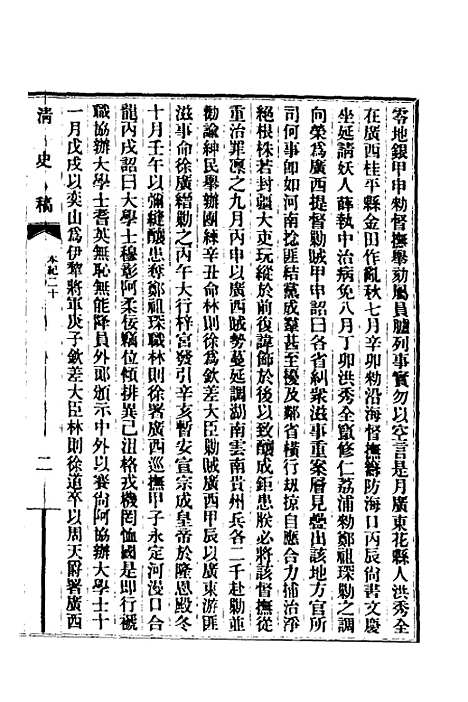 零地銀甲申勅督撫舉劾屬員臚列事實勿以空言是月廣東花縣人洪秀全
在廣西桂平縣金田作亂秋七月辛卯勅沿海督撫辦防海口丙辰尚書文慶
坐延請妖人薛執中治病免八月丁卯洪秀全竄修仁荔浦勅鄭祖琛勦之調
向榮爲廣西提督勦賊甲申詔曰各省糾衆滋事重案層見疊出該地方官所
司何事卽如河南捻匪結黨成羣甚至擾及鄰省橫行刧掠自應合力捕治淨
絕根株若封疆大吏玩縱於前復諱飾於後以致釀成鉅患朕必將該督撫從
重治罪凜之九月丙申以廣西賊勢蔓延調湖南雲南貴州兵各二千赴勦並
勸諭紳民舉辦團練辛丑命林則徐爲欽差大臣勦賊廣西甲辰以廣東游匪
滋事命徐廣縉勦之丙午大行梓宮發引辛亥暫安宣宗成皇帝於隆恩殿冬
十月壬午以彌縫釀患奪鄭祖琛職林則徐署廣西巡撫甲子永定河漫口合
龍丙戌詔曰大學士穆彰阿柔佞竊位傾排異己沮格戎機罔恤國是卽行褫
職協辦大學士耆英無恥無能降員外郎頒示中外以賽尚阿協辦大學士十
一月戊戌以奕山爲伊犂將軍庚子欽差大臣林則徐道卒以周天爵署廣西
清史稿
本紀二十
二